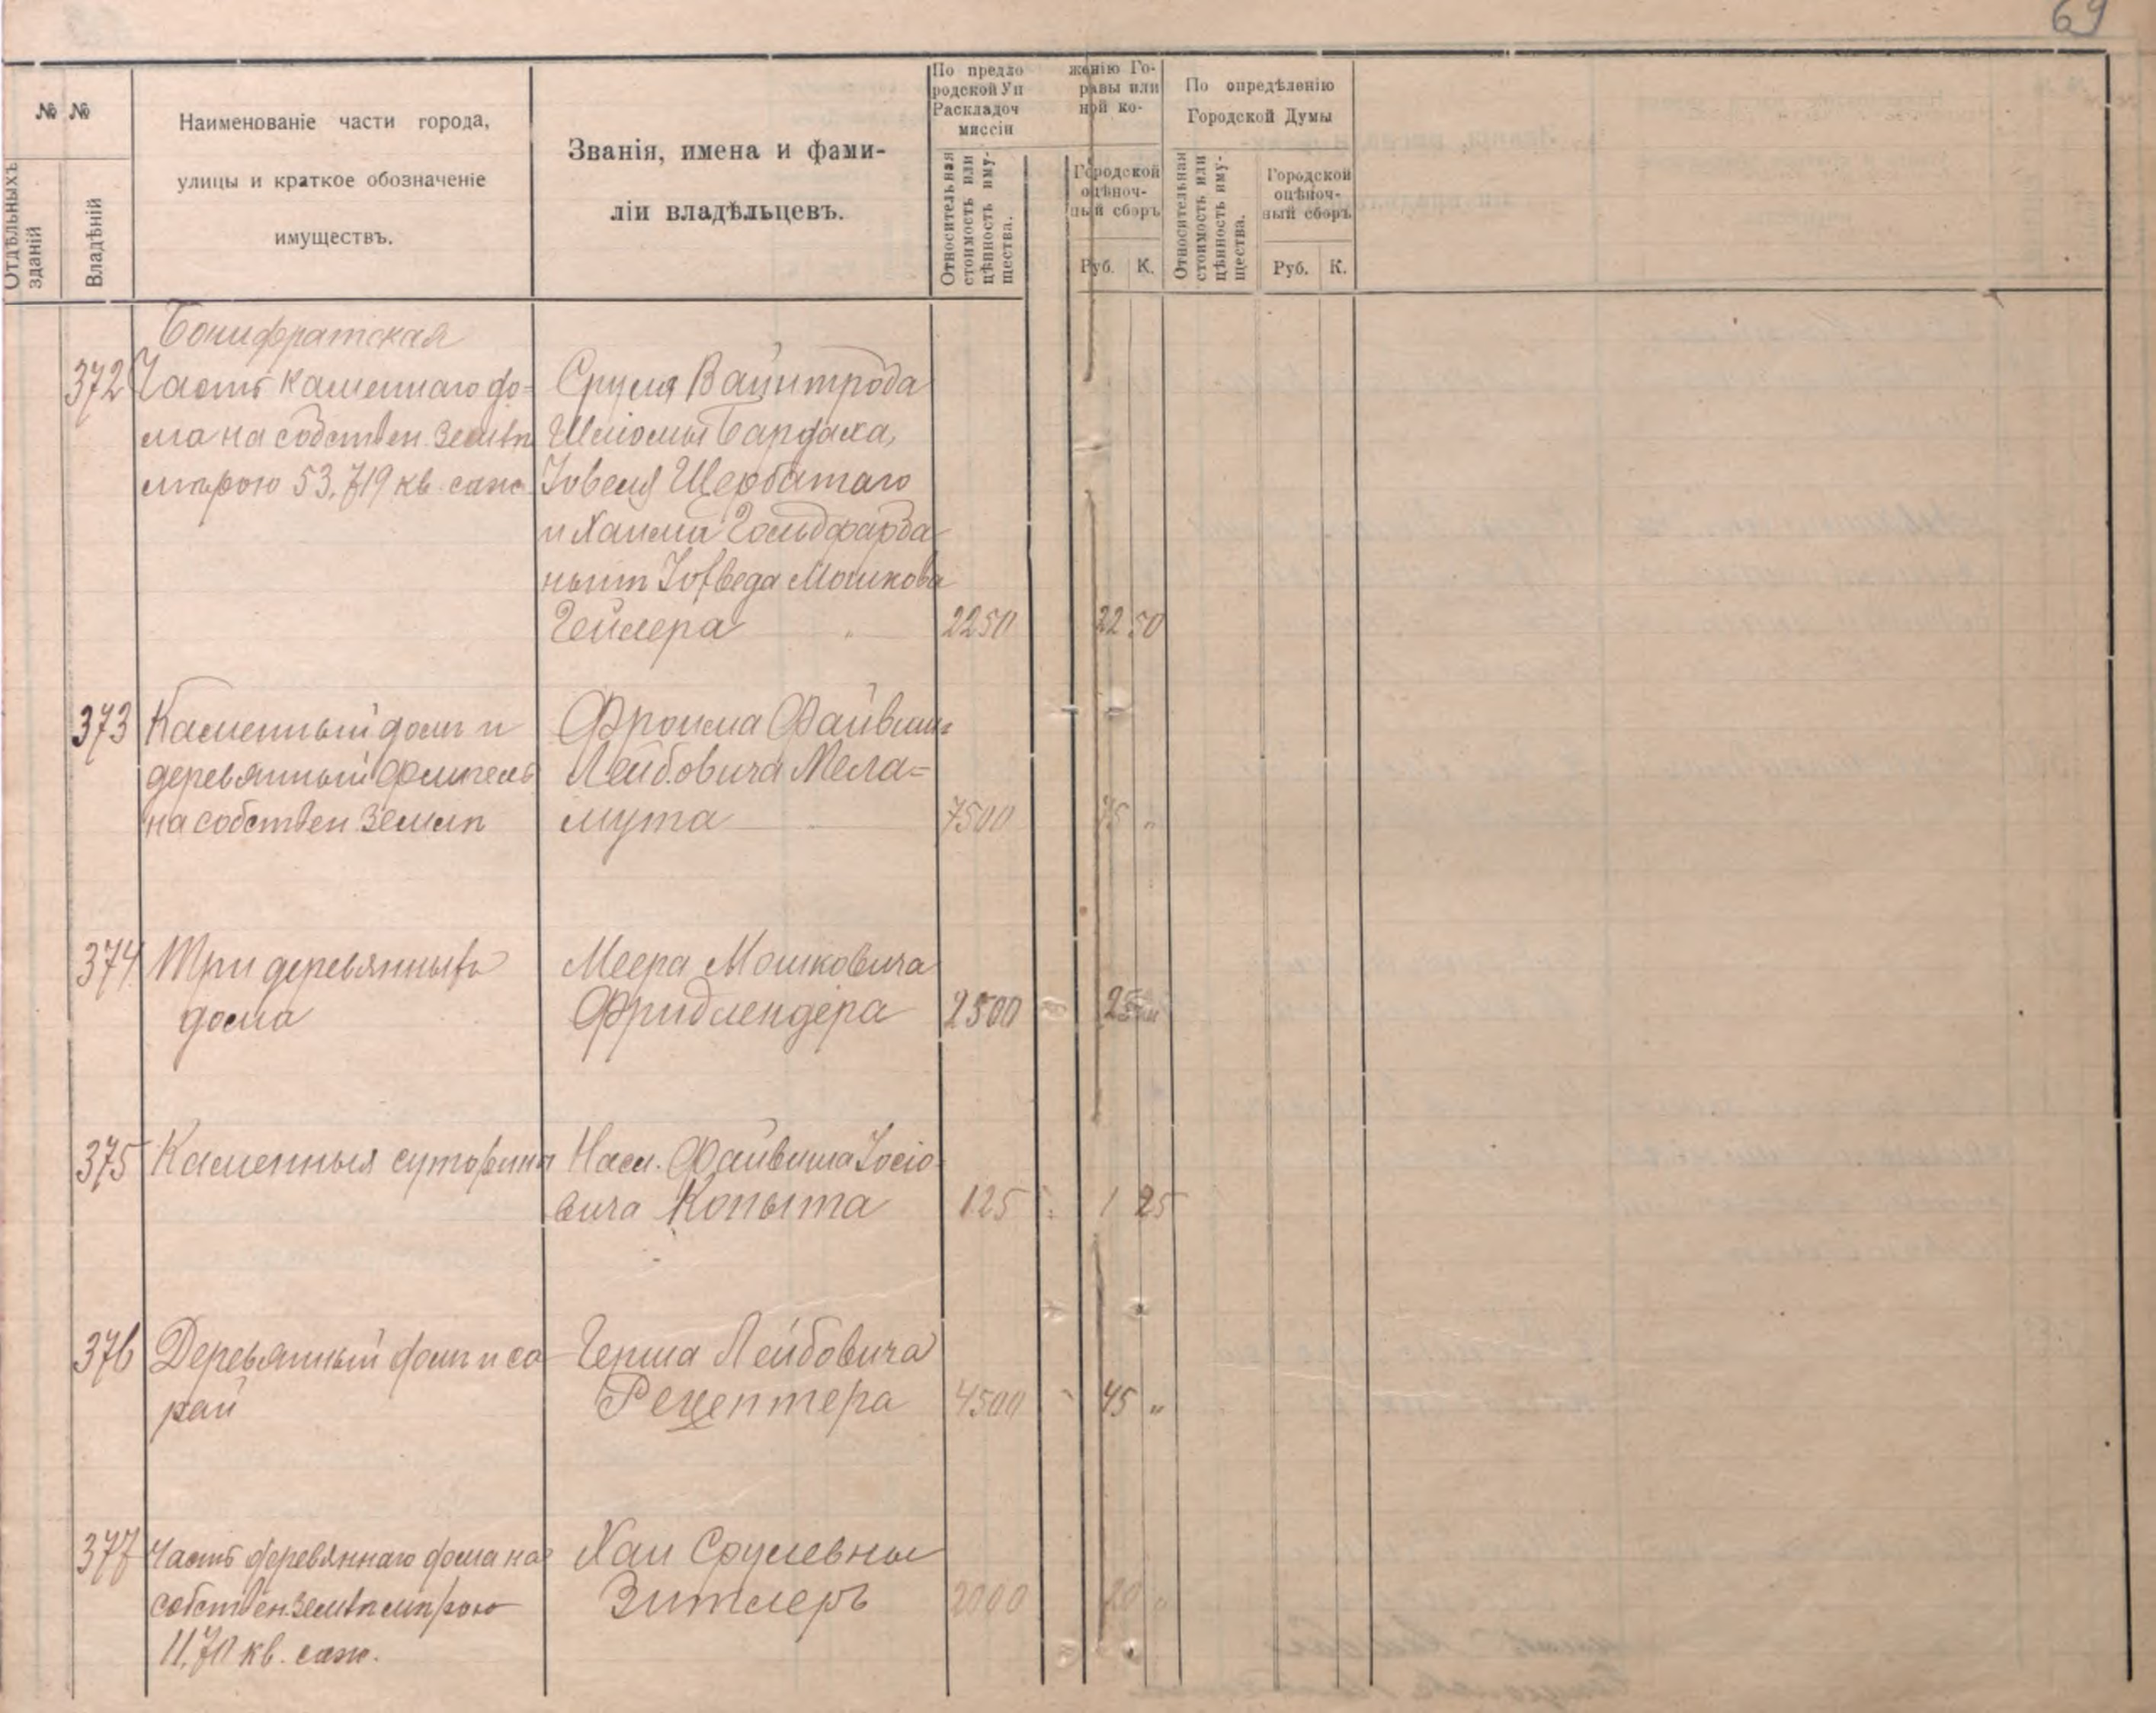 69
№ №
Отдѣльныхъ зданій
Владѣній
Наименованіе части города,
улицы и краткое обозначеніе
имуществъ.
Званія, имена и фами-
ліи владѣльцевъ.
По предло женію Го-
родской Уп равы или
Раскладоч ной ко-
миссіи
Относительная
стоимость или
цѣнность иму-
щества.
Городской
оцѣноч-
ный сборъ
Руб. К.
По опредѣленію
Городской Думы
Относительная
стоимость или
цѣнность иму-
щества.
Городской
оцѣноч-
ный сборъ
Руб. К.
Бонифратская
372 Часть каменнаго до-
ма на собствен землѣ
мѣрою 53,719 кв. саж.
Сруля Вайнтроба
Шліомы Бардаха,
Іовеля Щербатаго
и Хаима Гольдфарба
нынѣ Мошкова
Гейлера 2250 22 50
373 Каменный домъ и
деревянный флигель
на собствен землѣ
Фроима Файвиш
Лейбовича Мела-
мута 7500 75 "
374 Три деревянныхъ
дома
Меера Мошковича
Фридлендера 2500 25 "
375 Каменныя сутарины
Насл. Файвиша Іосіо-
вича Копыта 125 1 25
376 Деревянный домъ и са
рай
Герша Лейбовича
Рецептера 4500 45 "
377 Часть деревяннаго дома на
собствен землѣ мѣрою
11,70 кв. саж.
Хаи Срулевны
Зитлеръ 2000 20 "